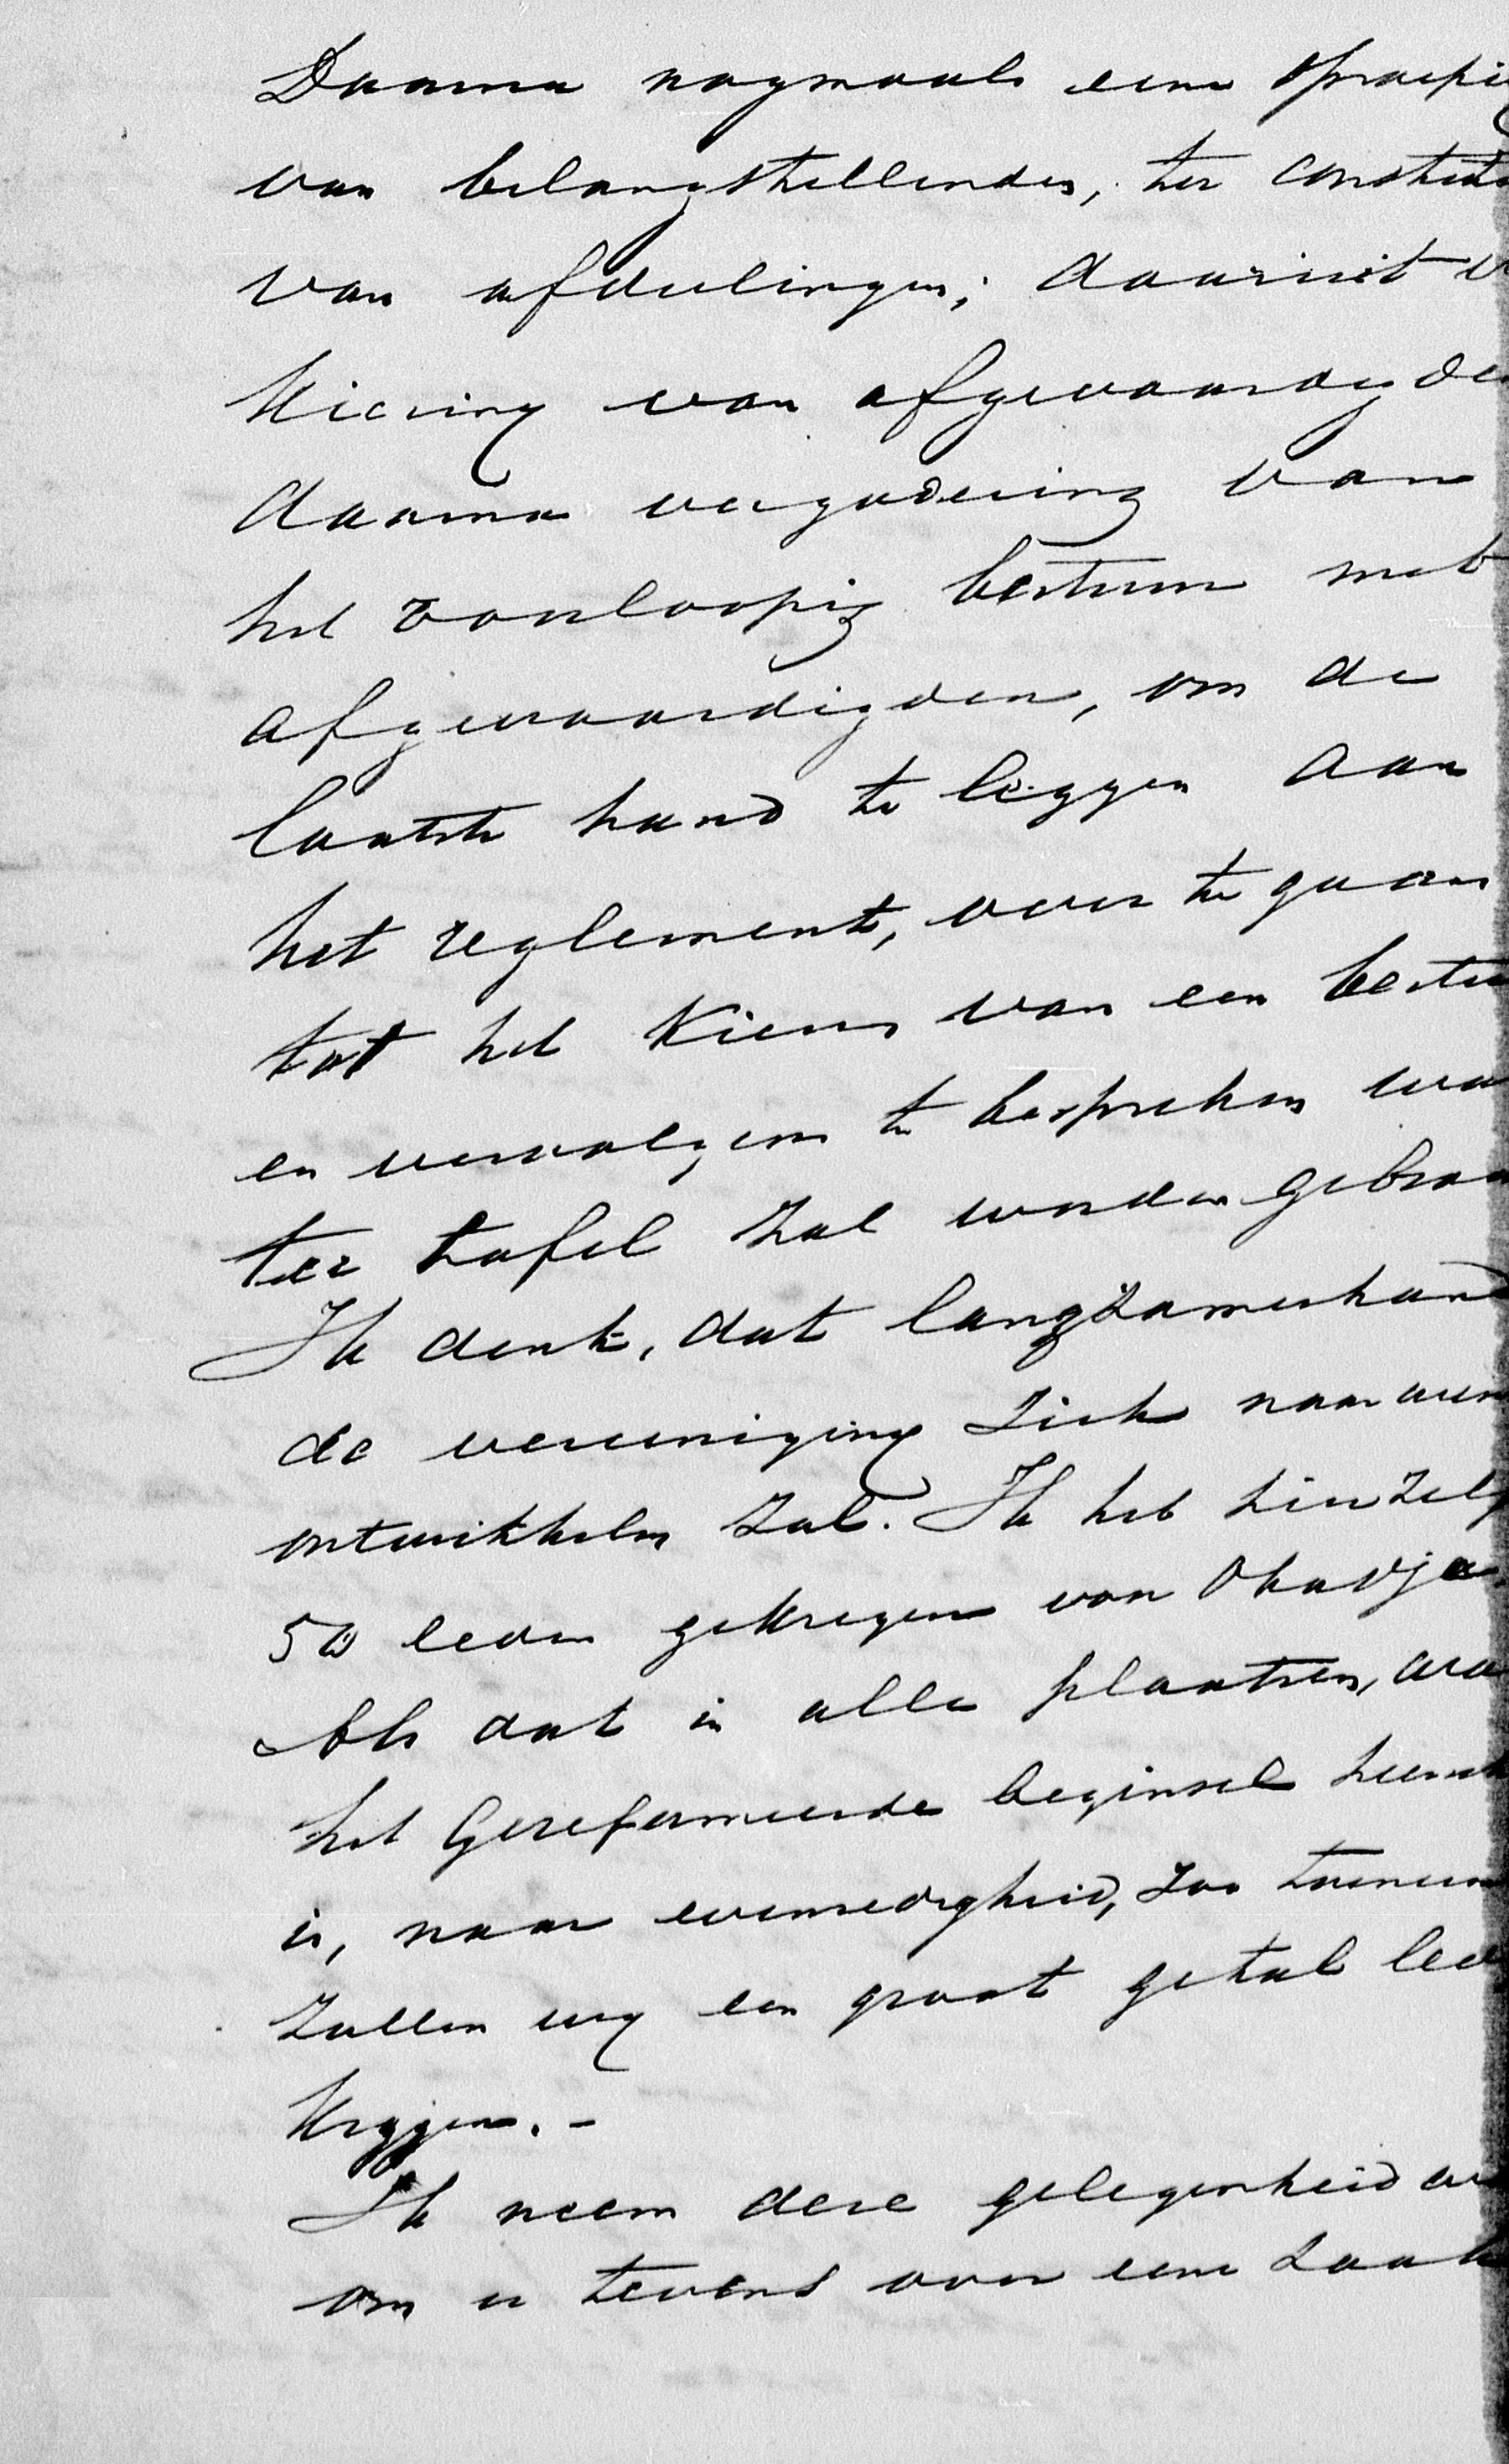 Daarna nogmaals eene oproepi
van belangstellenden, ter constitu
van afdeelingen; daaruit v
kiezing van afgevaardigde
daarna vergadering van
het voorloopig bestuur met
afgevaardigden, om de
laatste hand te leggen aan
het reglement, over te gaan
tot het kiezen van een bestu
en vervolgens te bespreken wa
ter tafel zal worden gebra
Ik denk, dat langzamerhand
de vereeniging zich naar wen
ontwikkelen zal. Ik heb hier zelf
50 leden gekregen van
Als dat in alle plaatsen, wa
het Gereformeerde beginsel
is, naar evenredigheid, zoo toeneem
zullen wy een groot getal led
krygen. -
Ik neem deze gelegenheid wa
om u tevens over eene zaak